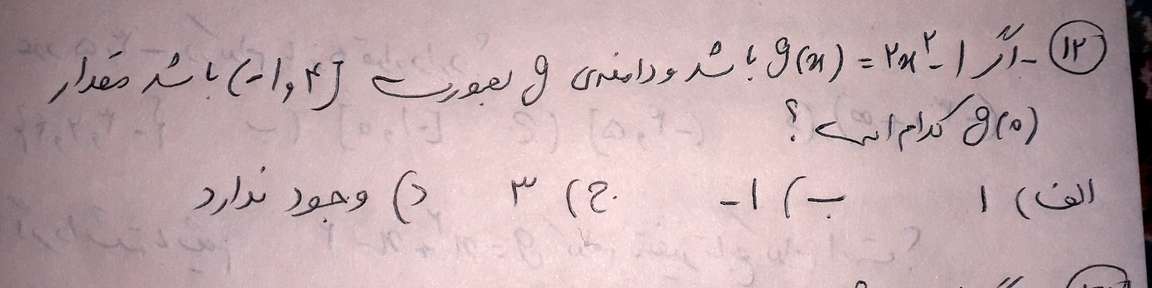 ۱۲- اگر g(x) = ۲x^۲ - ۱ باشد و دامنه‌ی g بصورت (-۱و۴] باشد مقدار
g(۵) کدام است؟
الف) ۱ ب) -۱ ج) ۳ د) وجود ندارد